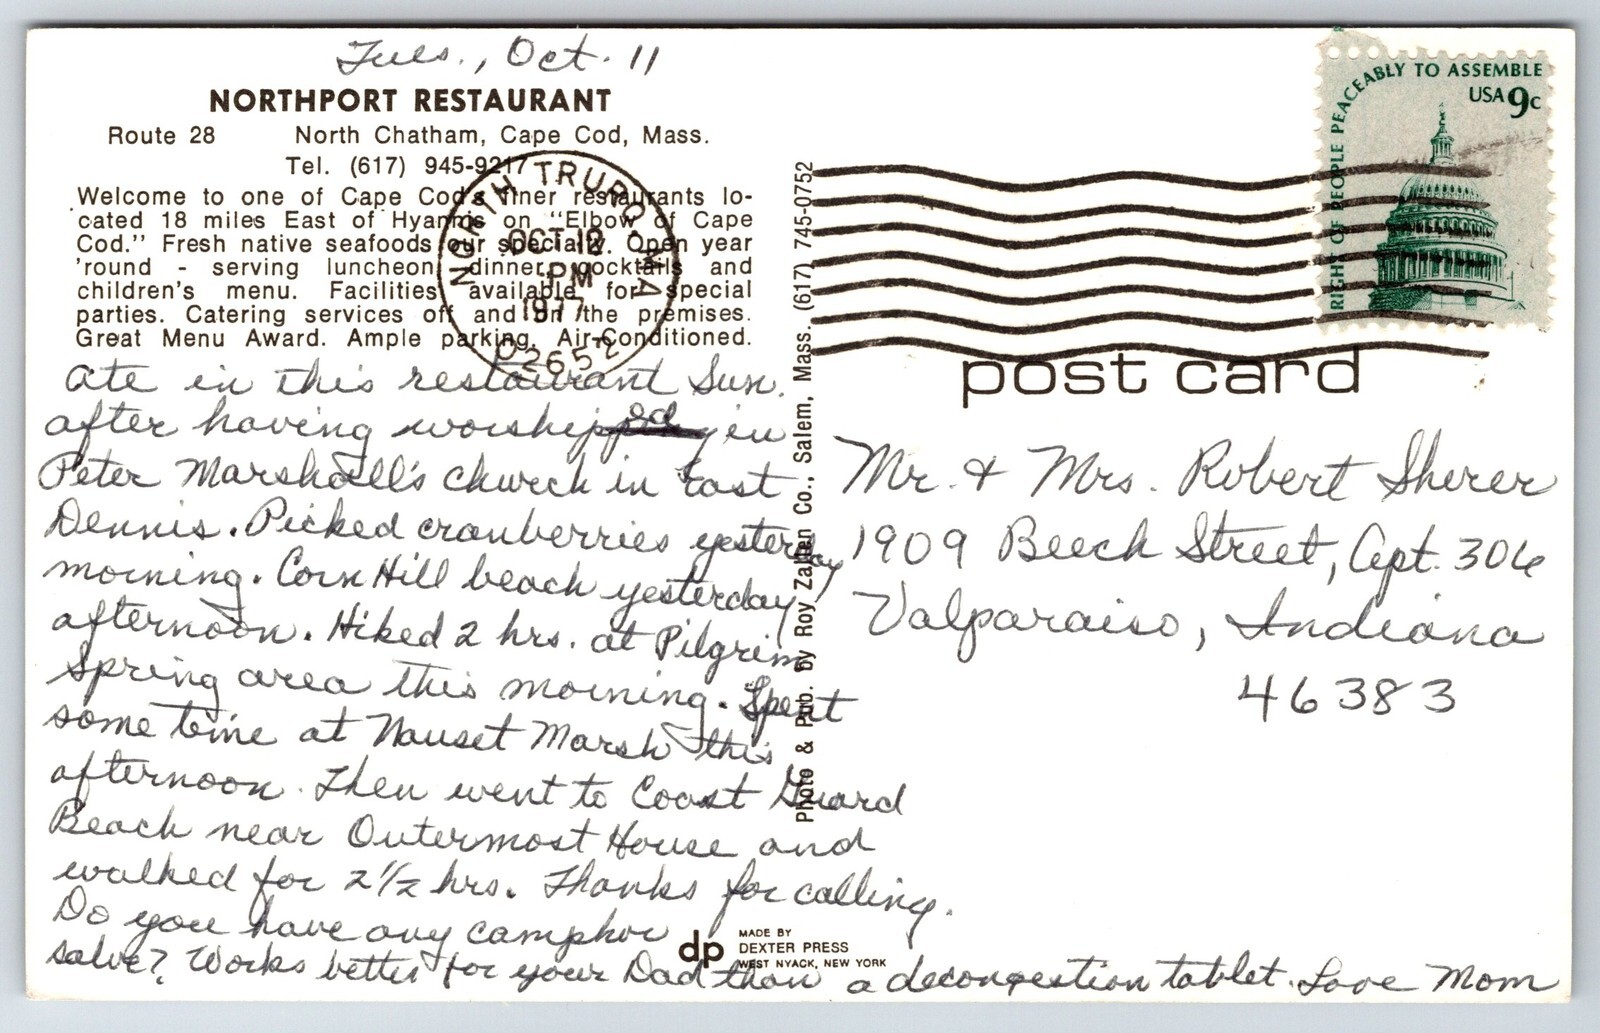 Tues., Oct. 11
NORTHPORT RESTAURANT
Route 28 North Chatham, Cape Cod, Mass.
Tel. (617) 945-9217
Welcome to one of Cape Cod's finer restaurants lo-
cated 18 miles East of Hyannis on "Elbow of Cape
Cod." Fresh native seafoods our specialty. Open year
'round - serving luncheon, dinner, cocktails and
children's menu. Facilities available for special
parties. Catering services off and on the premises.
Great Menu Award. Ample parking. Air-Conditioned.
Ate in this restaurant Sun.
after having worshipped in
Peter Marshall's church in East
Dennis. Picked cranberries yesterday
morning. Corn Hill beach yesterday
afternoon. Hiked 2 hrs. at Pilgrim
Spring area this morning. Spent
some time at Nauset Marsh this
afternoon. Then went to Coast Guard
Beach near Outermost House and
walked for 2 1/2 hrs. Thanks for calling.
Do you have any camphor
salve? Works better for your Dad than a decongestion tablet. Love Mom
NORTH TRURO, MA
OCT 12
PM
1977
02652
Photo & Pub. by Roy Zalten Co., Salem, Mass. (617) 745-0752
dp
MADE BY
DEXTER PRESS
WEST NYACK, NEW YORK
RIGHT OF PEOPLE PEACEABLY TO ASSEMBLE
USA 9c
post card
Mr. & Mrs. Robert Sherer
1909 Beech Street, Apt. 306
Valparaiso, Indiana
46383